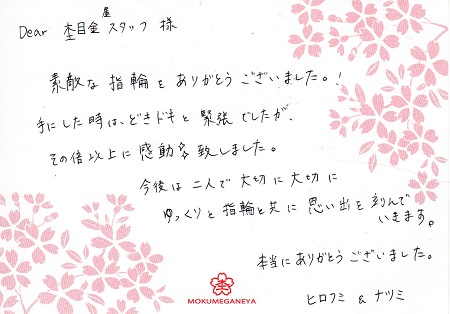 Dear 杢目金屋スタッフ 様
素敵な指輪をありがとうございました。!
手にした時は、どきドキと緊張でしたが、
その倍以上に感動を致しました。
今後は二人で大切に大切に
ゆっくりと指輪と共に思い出を刻んで
いきます。
本当にありがとうございました。
ヒロフミ & ナツミ
MOKUMEGANEYA